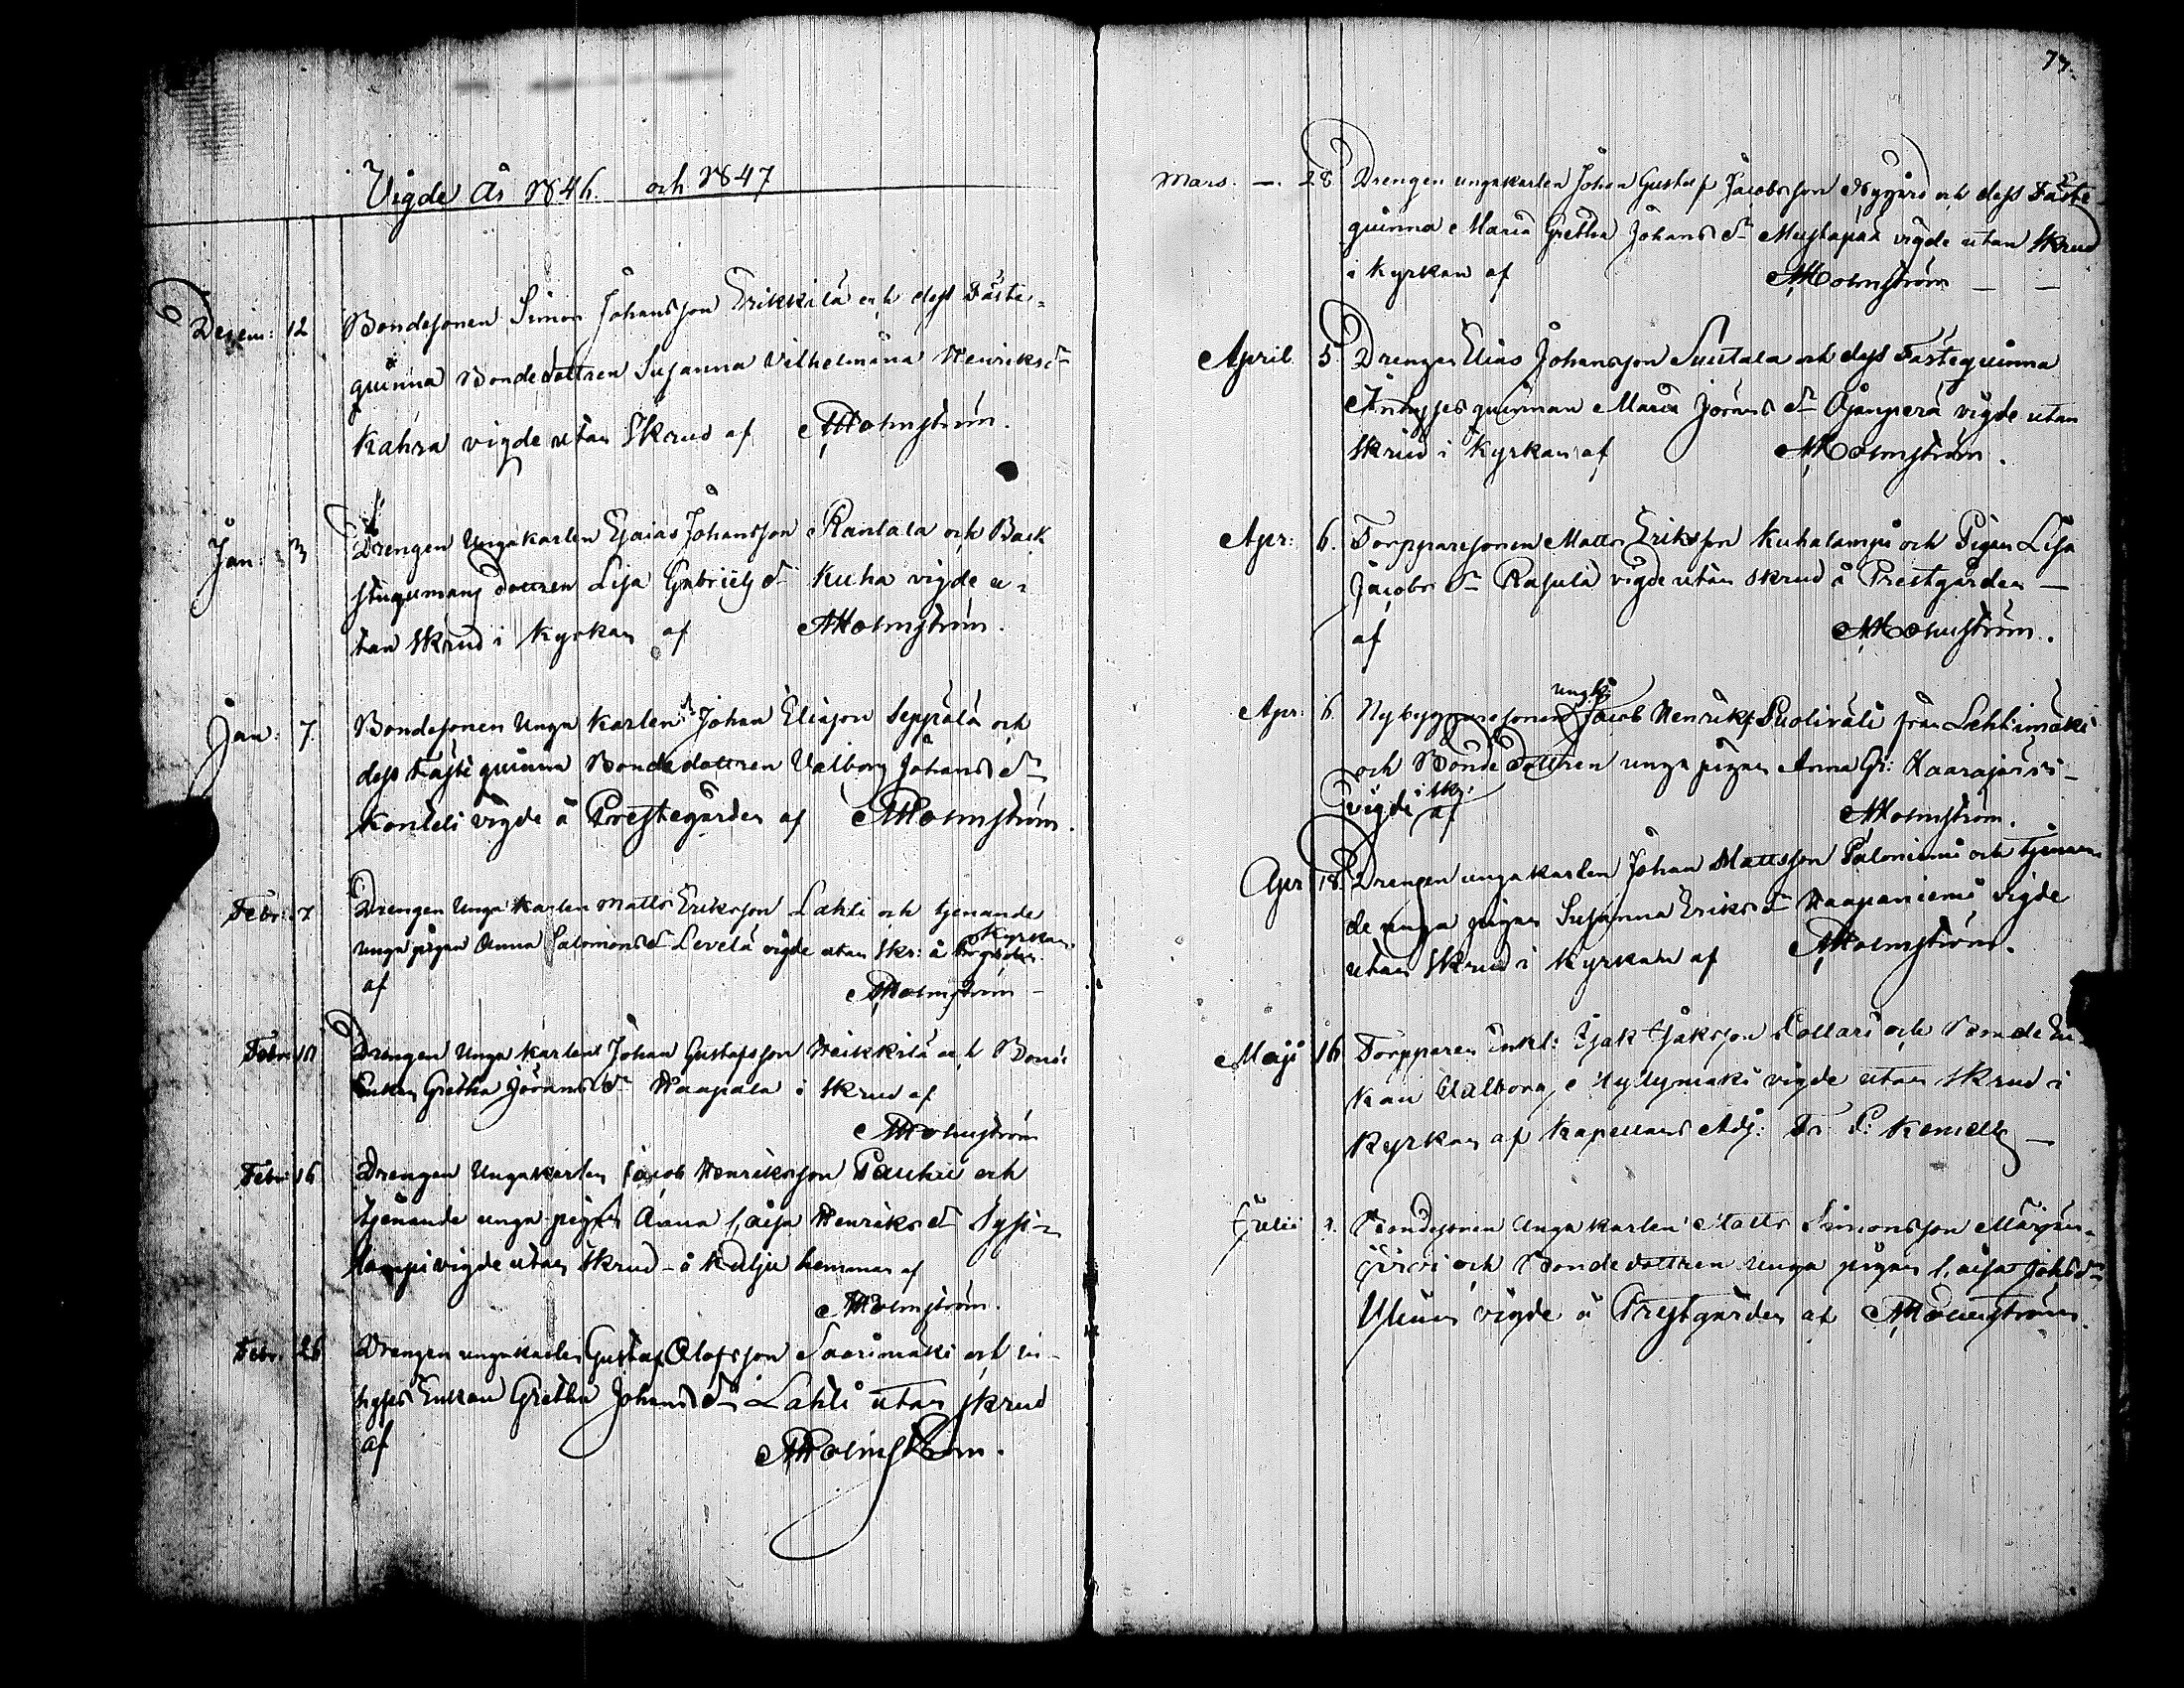 77.
Vigde År 1846. och 1847
Decem: 12 Bondesonen Simon Johansson Erikkilä och dess Fäste-
quinna Bondedottren Susanna Vilhelmina Henriksdr
Kahra vigde utan Skrud af AHolmström.
Jan: 3 Drengen Ungakarlen Esaias Johansson Rantala och Back
stugumans dottren Lisa Gabrielsdr Kuha vigde u-
tan Skrud i Kyrkan af AHolmström.
Jan: 7. Bondesonen Unga Karlen Johan Eliasson Seppälä och
dess Fästequinna Bondedottren Valborg Johansdr
Konteli vigde å Prestegården af AHolmström.
Febr: 7 Drengen Unga Karlen Matts Eriksson Lahti och tjenande
Kyrkan
unga pigan Anna Salomonsdr Levelä vigde utan Skr: å
af AHolmström
Febr: Drengen Unga Karlen Johan Gustafsson Heikkilä och Bonde
Enkan Gretha Jöransdr Haapala i Skrud af
AHolmström
Febr: 16 Drengen Ungakarlen Jacob Henriksson Pauhu och
tjenande unga pigan Anna Caisa Henriksdr Sysi-
lampi vigde utan Skrud å Kulju hemman af
AHolmström.
Febr: 26 Drengen ungakarlen Gustaf Olofsson Saarimäki och in-
hyses Enkan Gretha Johansdr Lahti utan skrud
af AHolmström.
Mars. — 28 Drengen ungakarlen Johan Gustaf Jacobsson Nygård och dess Fäste-
quinna Maria Gretha Johansdr Mustapää vigde utan Skrud
i Kyrkan af AHolmström — —
April 5. Drengen Elias Johansson Suutala och dess Fästequinna
Inhyses quinnan Maria Jöransdr Ojanperä vigde utan
Skrud i Kyrkan af AHolmström.
Apr: 6. Torpparesonen Matts Eriksson Kuhalampi och Pigan Lisa
Jacobsdr Rasula vigde utan Skrud å Prestgården —
af AHolmström.
ungk:
Apr: 6. Nybyggaresonen Jacob Henriks Puoliväli från Lehtimäki
och Bondedottren unga pigan Anna Gr: Haarajärvi —
i skr.
vigde af AHolmström.
Apr 18. Drengen ungakarlen Johan Mattsson Paloniemi och tjenan-
de unga pigan Susanna Eriksdr Haapaniemi vigde
utan Skrud i Kyrkan af AHolmström.
Maji 16 Torpparen Enkl: Isak Isaksson Lollari och Bonde En-
kan Valborg Myllymäki vigde utan skrud i
Kyrkan af Kapellans Adj: Kemell —
Julii Bondesonen Unga karlen Matts Simonsson
järvi och Bondedottren unga pigan Caisa Johsdr
vigde å Prestgården af AHolmström.